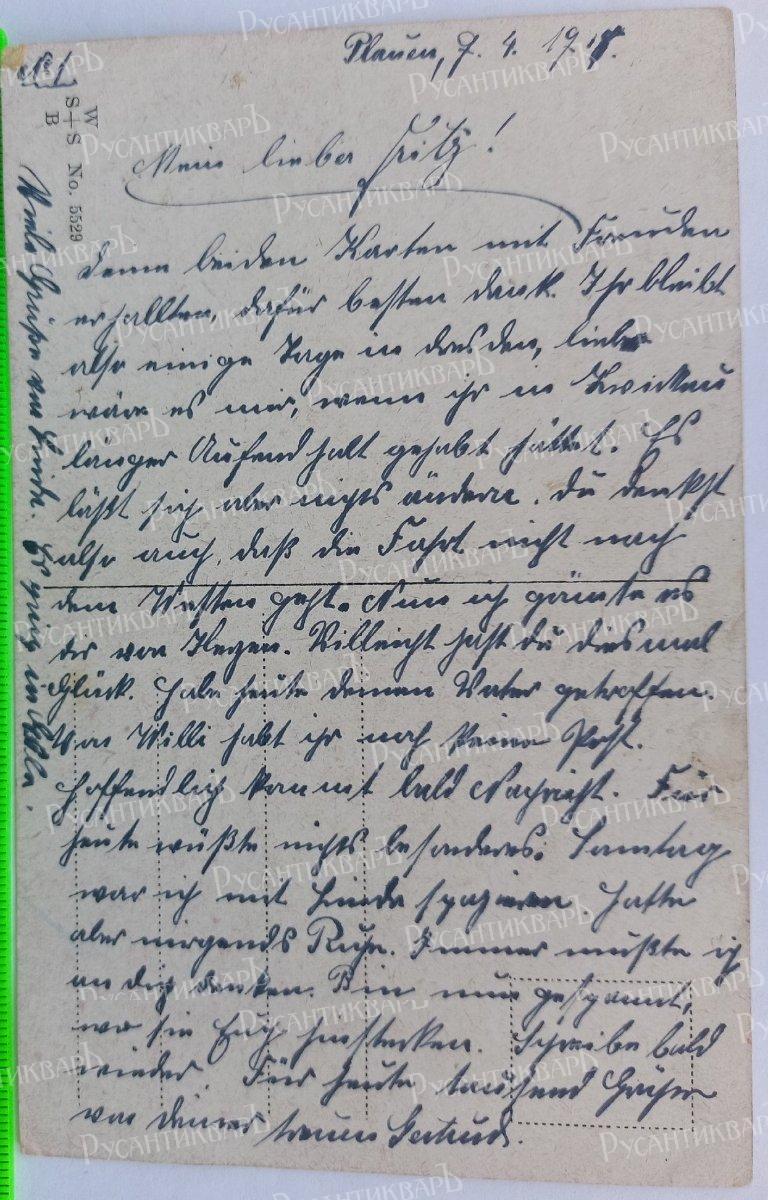 Plauen, 7. 4. 1918.
Mein lieber Fritz!
Deine beiden Karten mit Freuden
erhallten, dafür besten Dank. Ihr bleibt
also einige Tage in Dresden, lieber
wäre es mir, wenn ihr in Zwickau
länger Aufendhalt gehabt hättet. Es
läßt sich aber nichts ändern. Du denkst
also auch, daß die Fahrt nicht nach
dem Westen geht. Nun ich gönnte es
dir von Herzen. Villeicht hast du diesmal
Glück. Habe heute deinen Vater getroffen.
Von Willi habt ihr noch keine Post.
Hoffendlich kommt bald Nachricht. Für
heute wüßte nichts besonderes. Sonntag
war ich mit spazieren. Hatte
aber nirgends Ruhe. Immer mußte ich
an dich denken. Bin nun gespannt,
wo sie Euch hinstecken. Schreibe bald
wieder. Für heute tausend Grüße
von deiner treuen Gertrud.
Viele Grüße von
W
S+S No. 5529
B
РусАнтикварЪ